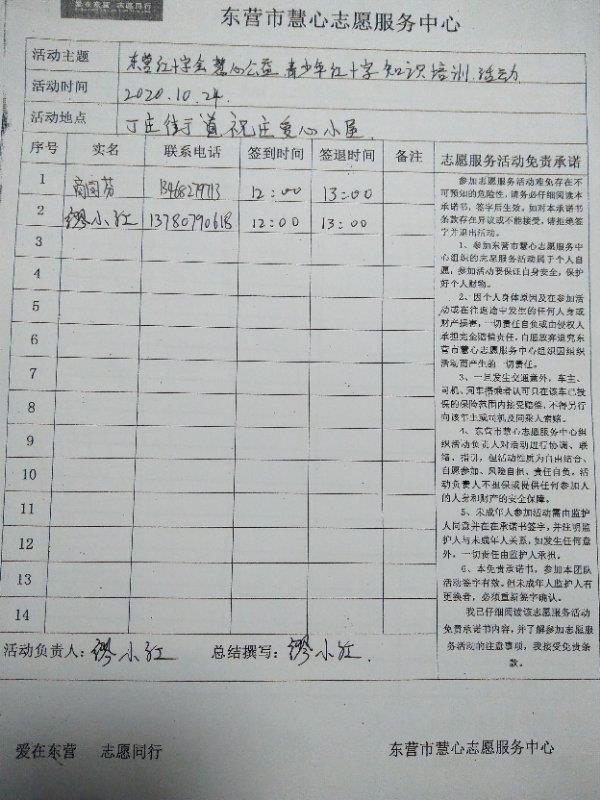 爱在东营 志愿同行
东营市慧心志愿服务中心
活动主题 东营红十字会慧心公益青少年红十字知识培训活动
活动时间 2020.10.24.
活动地点 丁庄街道祝庄爱心小屋
序号 实名 联系电话 签到时间 签退时间 备注 志愿服务活动免责承诺
1 12:00 13:00
2 缪小红 13780790618 12:00 13:00
3
4
5
6
7
8
9
10
11
12
13
14
参加志愿服务活动难免存在不
可预知的危险性,请务必仔细阅读本
承诺书,签字后生效。如对本承诺书
条款存在异议或不能接受,请拒绝签
字并退出活动。
1、参加东营市慧心志愿服务中
心组织的志愿服务活动属于个人自
愿,参加活动要保证自身安全,保护
好个人财物。
2、因个人身体原因及在参加活
动或在往返途中发生的任何人身或
财产损害,一切责任自负或由侵权人
承担完全赔偿责任,自愿放弃追究东
营市慧心志愿服务中心组织因组织
活动而产生的一切责任。
3、一旦发生交通意外,车主、
司机、同车搭乘者认可只在该车已投
保的保险范围内接受赔偿,不得另行
向该车主或司机及同乘人索赔。
4、东营市慧心志愿服务中心组
织活动负责人对活动进行协调、联
络、指引,但活动性质为自由结合、
自愿参加、风险自担、责任自负,活
动负责人不担保或提供任何参加人
的人身和财产的安全保障。
5、未成年人参加活动需由监护
人同意并在在承诺书签字,并注明监
护人与未成年人关系,如发生任何意
外,一切责任由监护人承担。
6、本免责承诺书,参加本团队
活动签字有效,但未成年人监护人有
更换者,必须重新签字确认。
我已仔细阅读该志愿服务活动
免责承诺书内容,并了解参加志愿服
务活动的注意事项,我接受免责条
款。
活动负责人:缪小红 总结撰写:缪小红
爱在东营 志愿同行 东营市慧心志愿服务中心